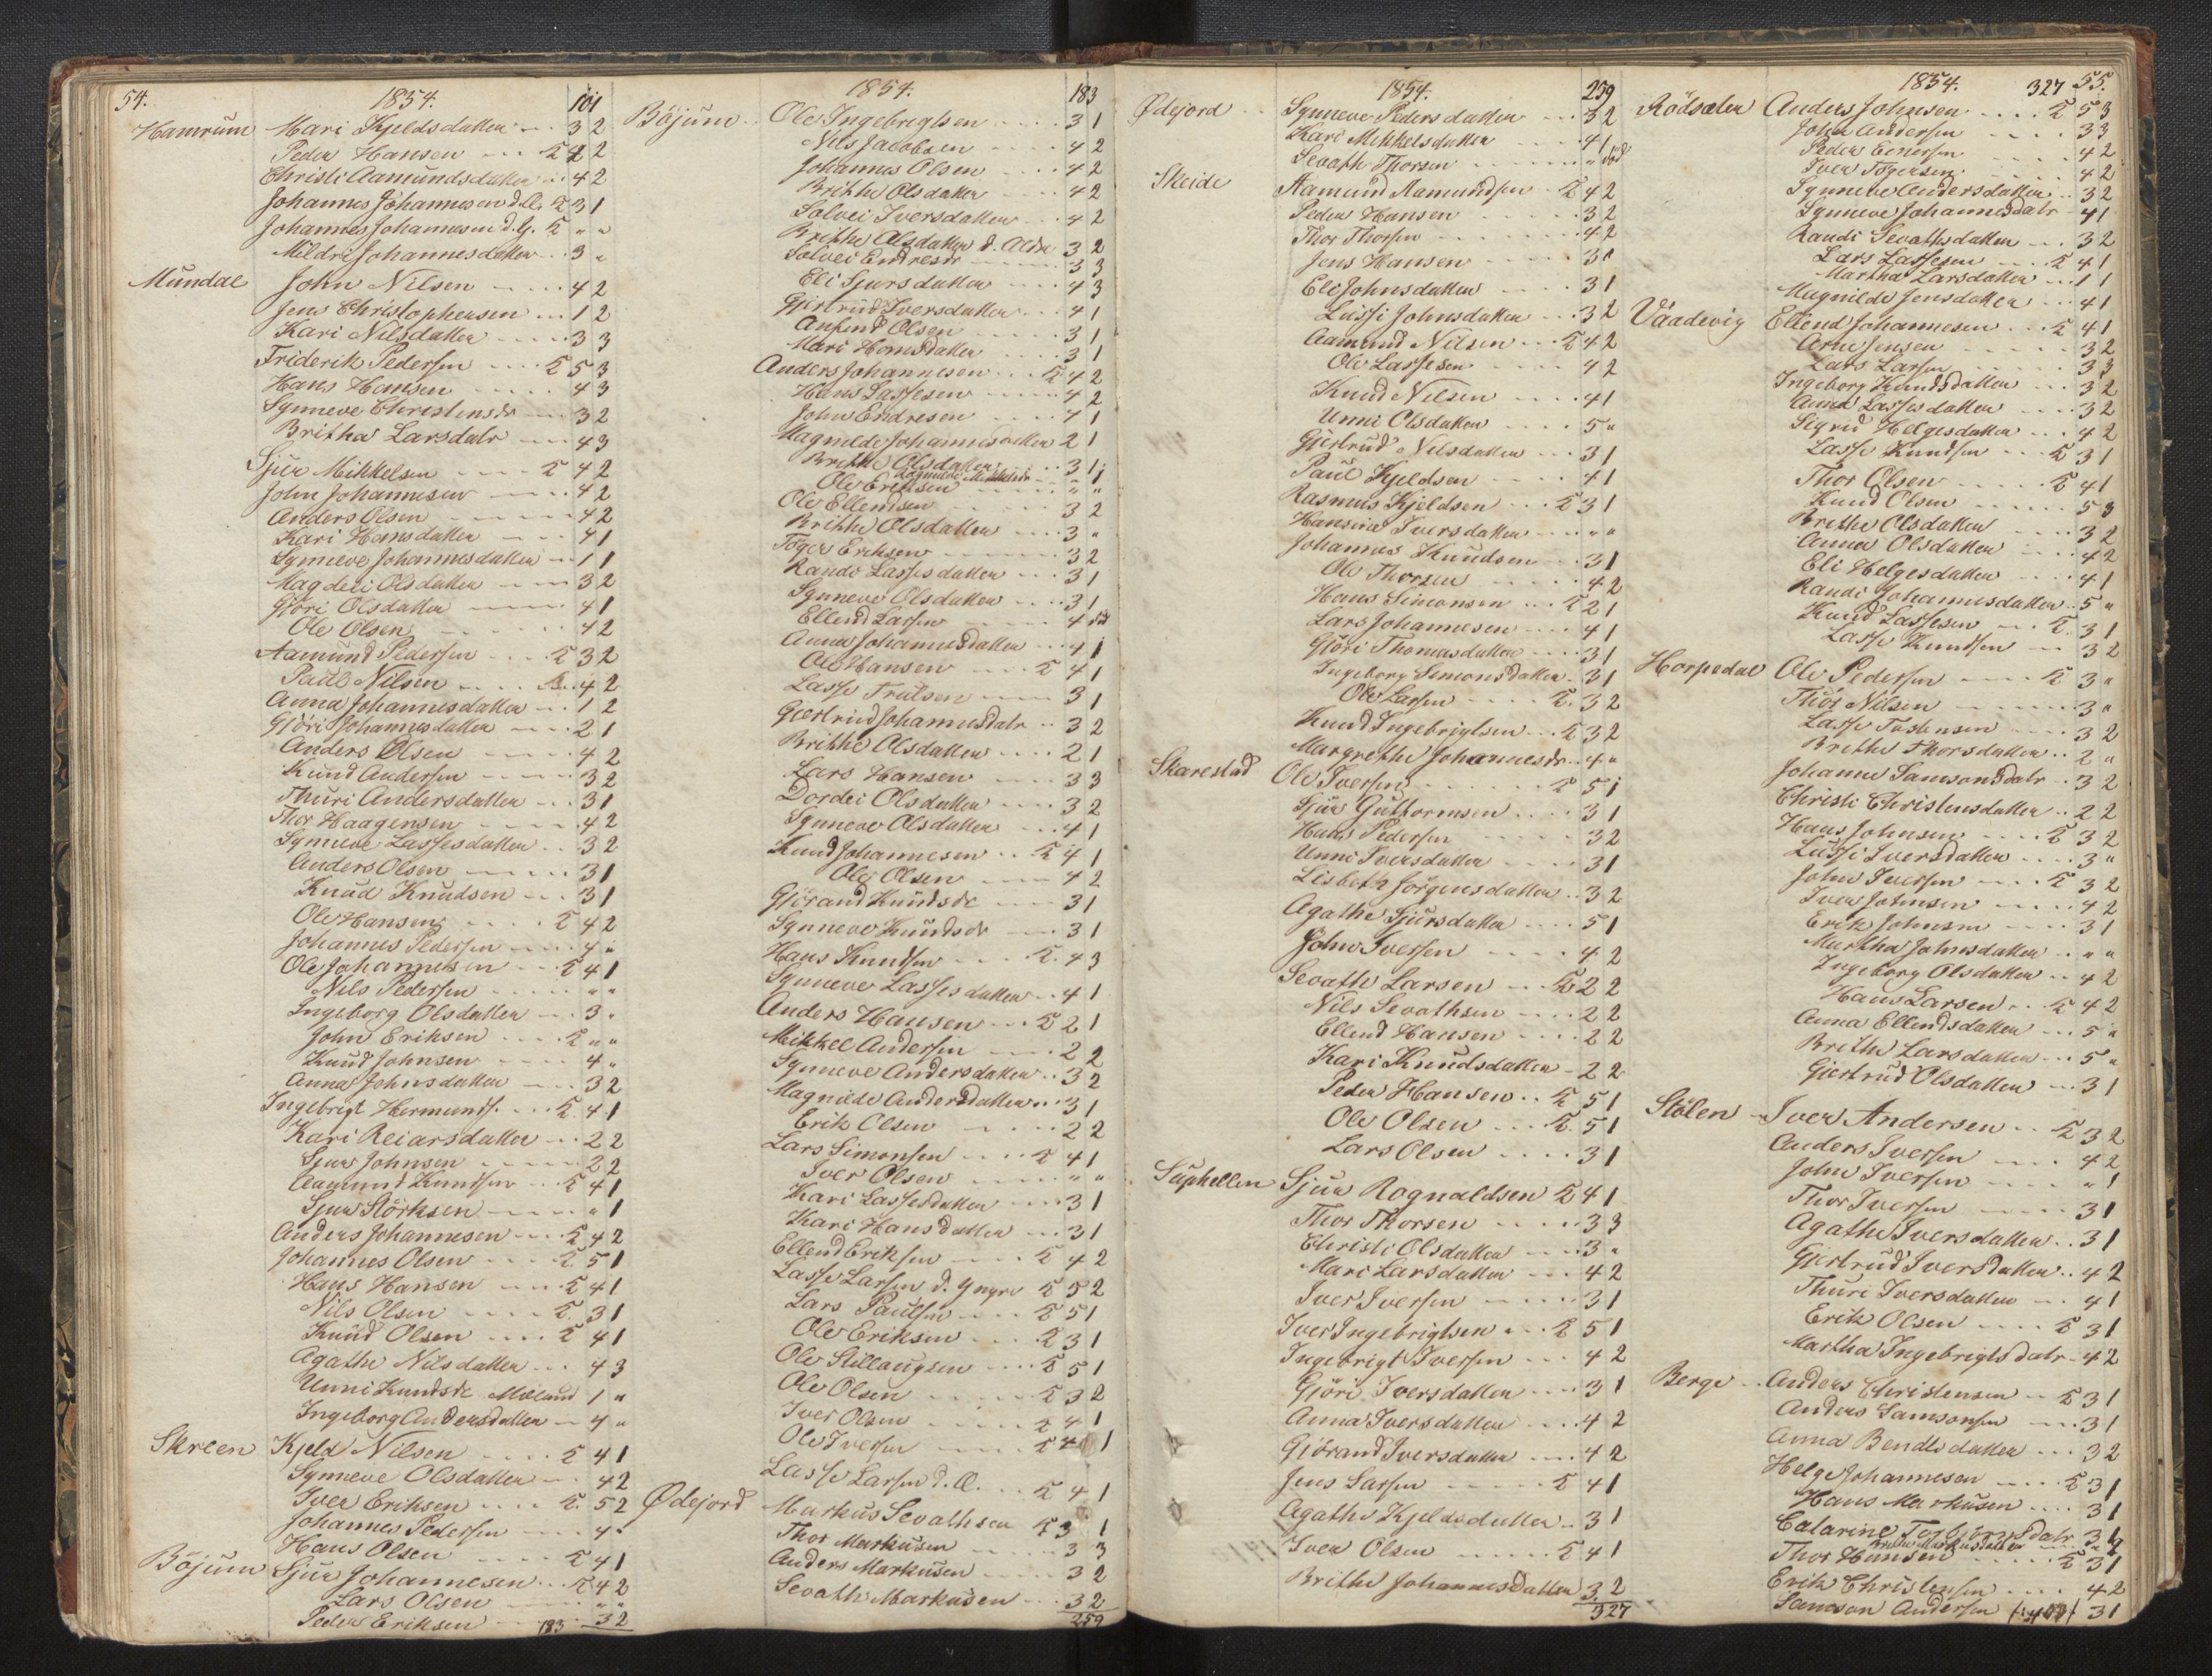 54. 1854. 101
Hamrum Mari Kjeldsdatter 3 2
Peder Hansen
Christi Aamundsdatter 4 2
Johannes Johannesen d. Æ. 3 1
Johannes Johannesen d. Y. " "
Mildri Johannesdatter 3 "
Mundal John Nilsen 4 2
Jens Christophersen 1 2
Kari Nilsdatter 3 3
Friderik Pedersen 5 3
Hans Hansen 4 3
Synneve Christensdr 3 2
Britha Larsdatr 4 3
Sjur Mikkelsen 4 2
John Johannesen 4 2
Anders Olsen 4 2
Kari Hansdatter 4 1
Synneve Johannesdatter 1 1
Magdeli Olsdatter 3 2
Gjöri Olsdatter 4 1
Ole Olsen 4 2
Aamund Pedersen 3 2
Paul Nilsen 4 2
Anna Johannesdatter 1 2
Gjöri Johannesdatter 2 1
Anders Olsen 4 2
Knud Andersen 3 2
Thuri Andersdatter 3 1
Thor Haagensen 4 2
Synneve Lassesdatter 3 2
Anders Olsen 3 1
Knud Knudsen 3 1
Ole Hansen 4 2
Johannes Pedersen 4 "
Ole Johannesen 4 1
Nils Pedersen " "
Ingeborg Olsdatter 3 "
John Eriksen " "
Knud Johnsen 4 "
Anna Johnsdatter 3 2
Ingebrigt Hermunds. 4 1
Kari Reiarsdatter 2 2
Sjur Johnsen 2 2
Aamund Knudsen 4 1
Sjur Störksen " 1
Anders Johannesen 4 2
Johannes Olsen 5 1
Hans Hansen 4 1
Nils Olsen 3 1
Knud Olsen 4 1
Agathe Nilsdatter 4 3
Unni Knudsdr 1 "
Ingeborg Andersdatter 4 "
Skreen Kjeld Nilsen 4 1
Synneve Olsdatter 4 2
Iver Eriksen 5 2
Johannes Pedersen 4 "
Hans Olsen 4 1
Böjum Sjur Johannesen 4 2
Lars Olsen " "
Peder Eriksen 3 2
183
1854. 183
Böjum Ole Ingebrigtsen 3 1
Nils Jacobsen 4 2
Johannes Olsen 4 2
Brithe Olsdatter 4 2
Solvei Iversdatter 4 2
Brithe Olsdatter d. Ældr 3 2
Solvei Endresdr 3 3
Eli Sjursdatter 4 3
Gjertrud Iversdatter 4 1
Anfind Olsen 3 1
Mari Hansdatter 3 1
Anders Johannesen 4 2
Hans Lassesen 4 2
John Endresen 4 1
Magnilde Johannesdatter 2 1
Brithe Olsdatter 3 1
Ragnilde Mikkelsdr " 1
Ole Eriksen " "
Ole Ellendsen 3 2
Brithe Olsdatter 3 "
Töger Eriksen 3 2
Randi Lassesdatter 3 1
Synneve Olsdatter 3 1
Ellend Larsen 4
Anna Johannesdatter 4 1
Ole Hansen 4 1
Lasse Trulsen 3 1
Gjertrud Johannesdatr 3 2
Brithe Olsdatter 2 1
Lars Hansen 3 3
Dordei Olsdatter 3 2
Synneve Olsdatter 4 1
Knud Johannesen 4 1
Ole Olsen 4 2
Gjörand Knudsdr 3 1
Synneve Knudsdr 3 1
Hans Knudsen 4 3
Synneve Lassesdatter 4 1
Anders Hansen 2 1
Mikkel Andersen 2 2
Synneve Andersdatter 3 2
Magnilde Andersdatter 3 1
Erik Olsen 2 2
Lars Simonsen 4 1
Iver Olsen " "
Kari Lassesdatter 3 1
Kari Hansdatter 3 1
Ellend Eriksen 4 2
Lasse Larsen d. Yngre 5 2
Lars Paulsen 5 1
Ole Eriksen 3 1
Ole Stillaugsen 5 1
Ole Olsen 3 2
Iver Olsen 4 1
Ole Iversen 4 1
Lasse Larsen d. Æ. 4 1
Ödejord Markus Sevathsen 3 1
Thor Markusen 3 3
Anders Markusen 3 2
Sevath Markusen 3 2
259
1854. 259
Ødejord Synneve Pedersdatter 3 2
Kari Mikkelsdatter 4 1
Sevath Thorsen " död
Skeide Aamund Aamundsen 4 2
Peder Hansen 3 2
Thor Thorsen 4 2
Jens Hansen 3 1
Eli Johnsdatter 3 1
Lussi Johnsdatter 3 2
Aamund Nilsen 4 2
Ole Lassesen 4 2
Knud Nilsen 4 1
Unni Olsdatter 5 "
Gjertrud Nilsdatter 3 1
Paul Kjeldsen 4 1
Rasmus Kjeldsen 3 1
Hansine Iversdatter " "
Johannes Knudsen 3 1
Ole Thorsen 4 2
Hans Simonsen 2 1
Lars Johannesen 4 1
Gjöri Thomasdatter 3 1
Ingeborg Simonsdatter 3 1
Ole Larsen 3 2
Knud Ingebrigtsen 3 2
Margrethe Johannesdr 4 "
Skarestad Ole Iversen 5 1
Sjur Guttormsen 3 1
Hans Pedersen 3 2
Unni Iversdatter 3 1
Lisbeth Jörgensdatter 3 2
Agathe Sjursdatter 5 1
John Iversen 4 2
Sevath Larsen 2 2
Nils Sevathsen 2 2
Ellend Hansen 2 2
Kari Knudsdatter 2 2
Peder Hansen 5 1
Ole Olsen 5 1
Lars Olsen 3 1
Suphellen Sjur Rognaldsen 4 1
Thor Thorsen 3 3
Christi Olsdatter 3 "
Mari Larsdatter 4 2
Iver Iversen 3 1
Iver Ingebrigtsen 5 1
Ingebrigt Iversen 4 2
Gjöri Iversdatter 3 1
Anna Iversdatter 4 2
Gjörand Iversdatter 4 2
Jens Larsen 4 1
Agathe Kjeldsdatter 3 1
Iver Olsen 4 1
Brithe Johannesdatter 3 2
327
1854. 327 55.
Rödsæter Anders Johnsen 5 3
John Andersen 3 3
Peder Einersen 4 2
Iver Tögersen 4 2
Synneve Andersdatter 3 2
Synneve Johannesdatr 4 1
Randi Sevathsdatter 3 2
Lars Lassesen 4 1
Martha Larsdatter 1 1
Magnilde Jensdatter 4 1
Vaadevig Ellend Johannesen 4 1
Arne Jensen 3 2
Lars Larsen 3 3
Ingeborg Knudsdatter 3 2
Anna Lassesdatter 3 2
Sigrid Helgesdatter 4 2
Lasse Knudsen 3 1
Thor Olsen 4 1
Knud Olsen 5 3
Brithe Olsdatter 3 2
Anna Olsdatter 4 2
Eli Helgesdatter 4 1
Randi Johannesdatter 5 "
Knud Lassesen 3 1
Lasse Knudsen 3 2
Horpedal Ole Pedersen 3 "
Thor Nilsen 3 "
Lasse Tostensen 3 2
Brithe Thorsdatter 2 "
Johanne Samsonsdatr 3 2
Christi Christensdatter 2 2
Hans Johnsen 3 2
Lussi Iversdatter 3 "
John Iversen 3 2
Iver Johnsen 4 2
Erik Johnsen 3 1
Martha Johnsdatter " "
Ingeborg Olsdatter 4 2
Hans Larsen 4 2
Anna Ellendsdatter 5 "
Brithe Larsdatter 5 "
Gjertrud Olsdatter 3 1
Stölen Iver Andersen 3 2
Anders Iversen 4 2
John Iversen " 1
Thor Iversen 3 1
Agathe Iversdatter 3 1
Gjertrud Iversdatter 4 2
Thuri Iversdatter 4 1
Erik Olsen 3 1
Martha Ingebrigtsdatr 4 2
Berge Anders Christensen 3 1
Anders Samsonsen 3 1
Anna Bendtsdatter 3 2
Helge Johannesen 3 1
Hans Markusen 3 1
Catarine Torbjörnsdatr
Thor Hansen 3 1
Erik Christensen 4 2
Samson Andersen 3 1